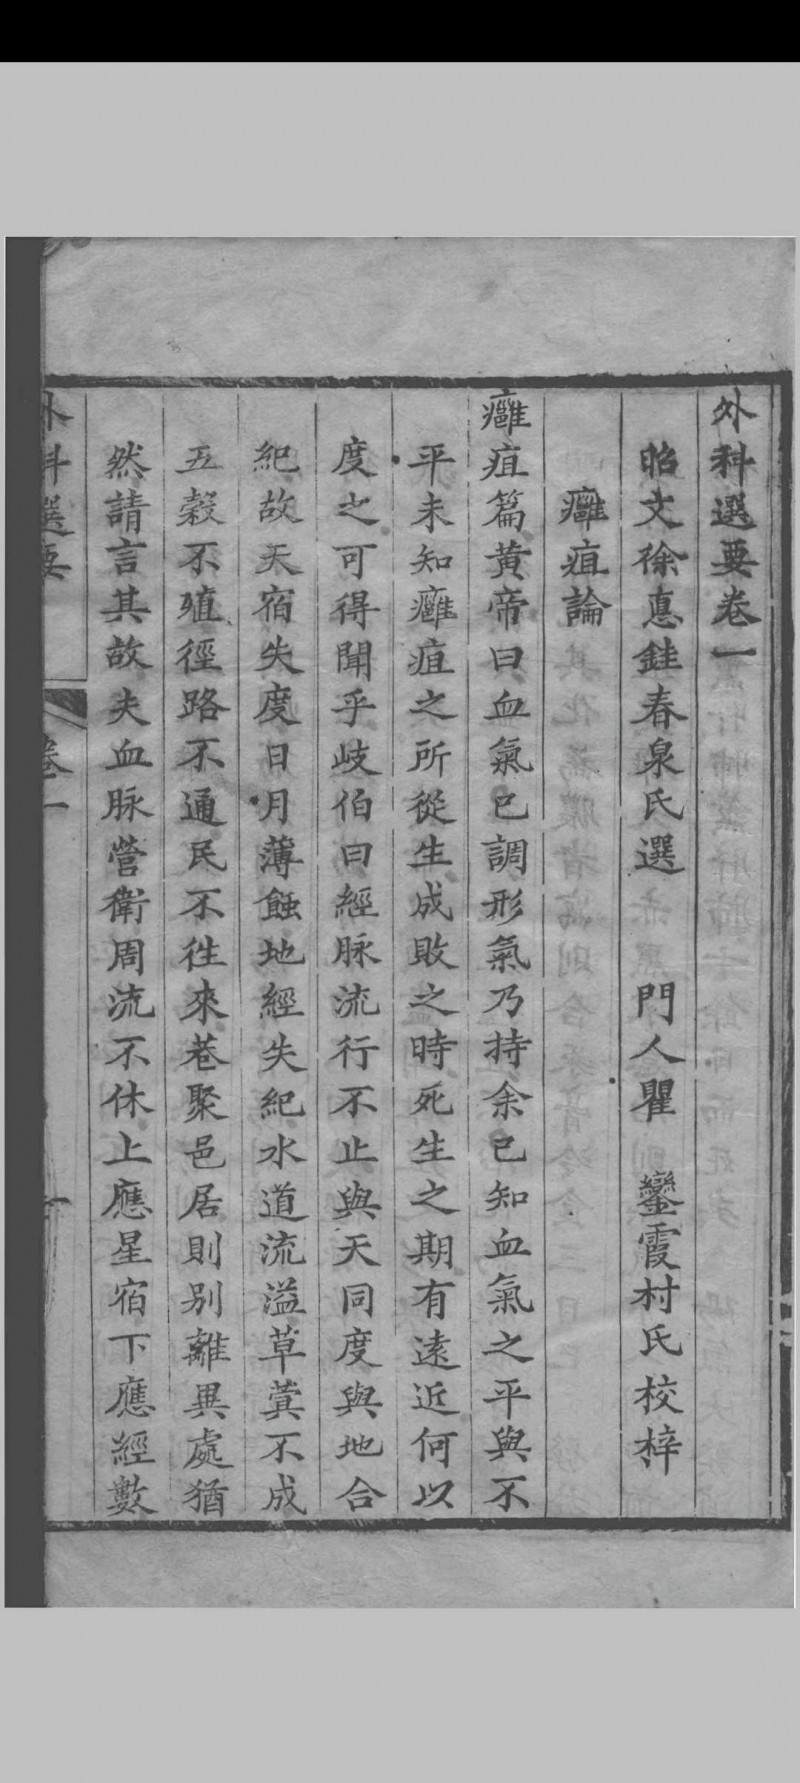 外科選要卷一
昭文徐惪銈春泉氏選 門人瞿 鑾霞村氏校梓
癰疽論
癰疽篇黃帝曰血氣已調形氣乃持余已知血氣之平與不
平未知癰疽之所從生成敗之時死生之期有遠近何以
度之可得聞乎岐伯曰經脉流行不止與天同度與地合
紀故天宿失度日月薄蝕地經失紀水道流溢草蓂不成
五穀不殖徑路不通民不徃來巷聚邑居則别離異處猶
然請言其故夫血脉營衛周流不休上應星宿下應經數
外科選要 卷一 一